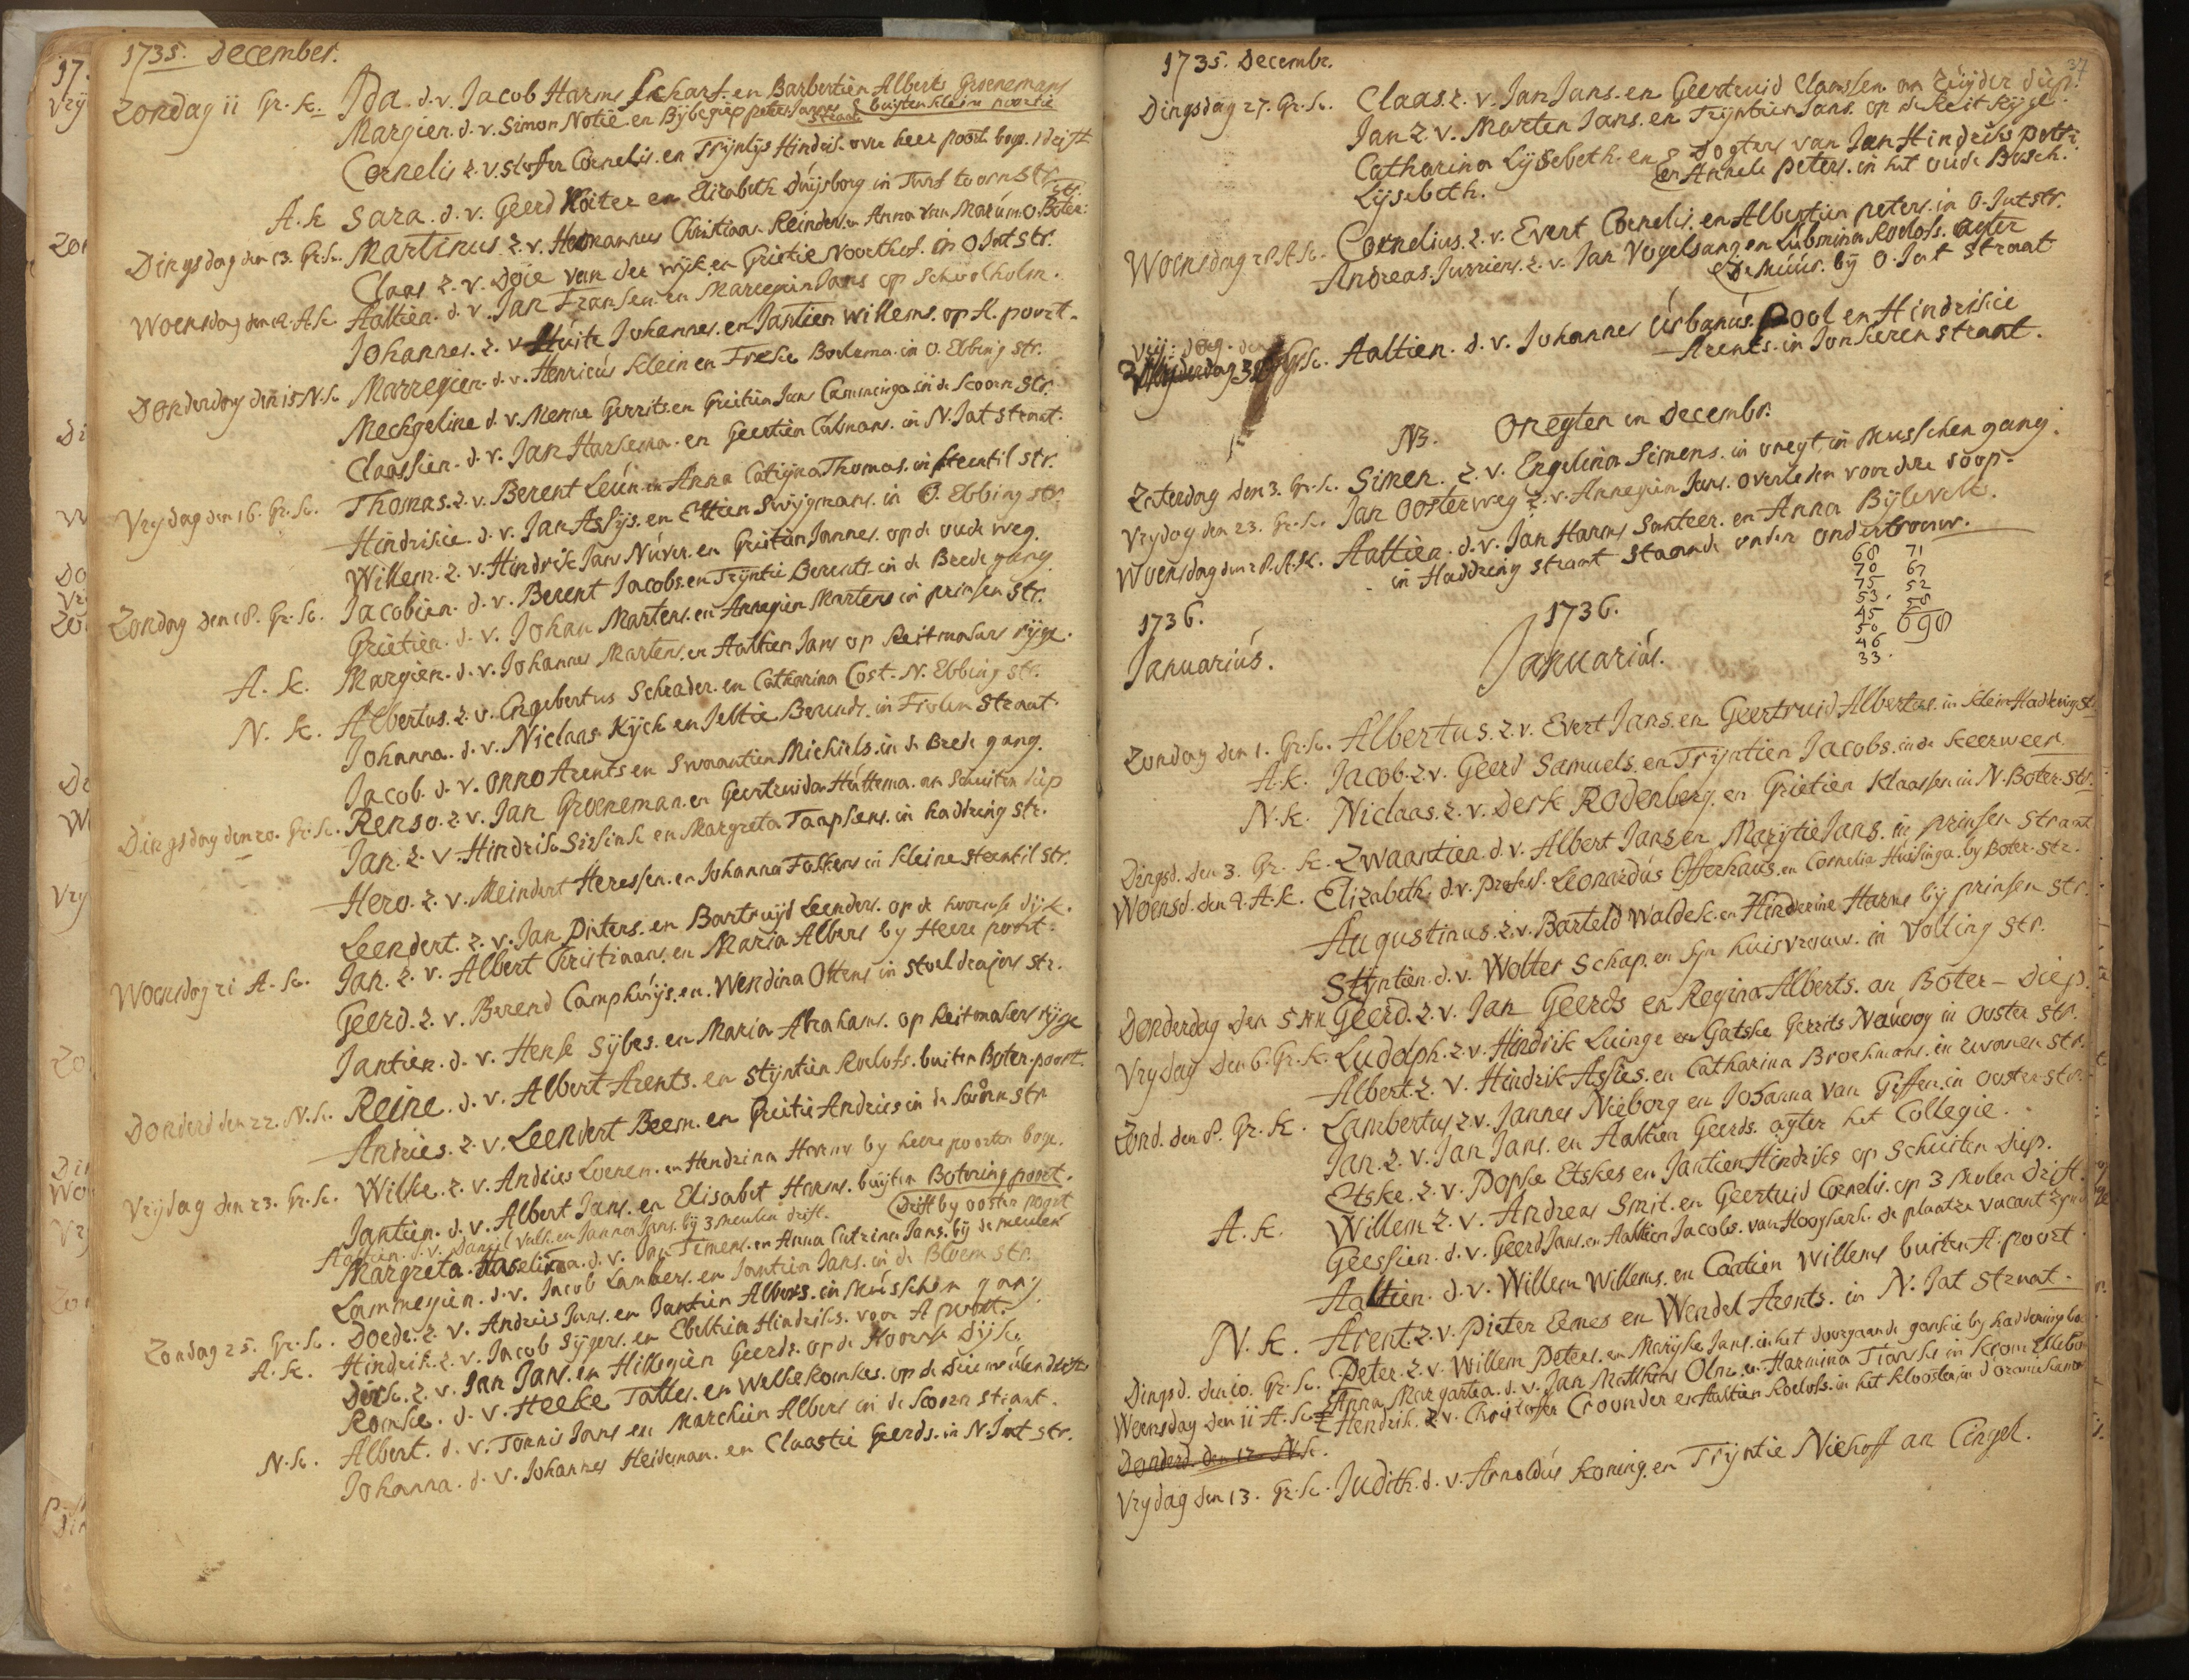 1735. December.
Zondag 11 Gr. K. Ida. d. v. Jacob Harms Schars. en Barbertien Alberts Groenemans
Margien. d. v. Simon Notie. en Bijbegiep peter Jannes & buijten klein poortie
straat
Cornelis z. v. Stoffer Cornelis. en Trijntijs Hindriks. over heer poort boge. drift
A. K Sara. d. v. Geerd Roiter en Elizabeth Duijsborg in Turftoornstr.
Dingsdag den 13. Gr. K. Martinus. z. v. Hermannus Christiaan Reinders. en Anna van Marúm. O. Boter:
str.
Claas z. v. Doie van der wijk. en Grietie Noorthof. in O Jatstr.
Woensdag den 14. A. K. Aaltien. d. v. Jan Fransen. en Marregien Jans op Schoolholm.
Johannes. z. v. Huite Johannes. en Jantien willems. op A. poort.
Donderdag den 15 N. K. Marregien. d. v. Henricus Klein en Freske Bockema. in O. Ebbing str.
Mechgeline d. v. Menne Gerrits. en Grietien Jans Camminga in de Scoorn str.
Claassien. d. v. Jan Harkema. en Geertien Calmans. in N. Jat straat.
Vrydag den 16. Gr. K. Thomas. z. v. Berent Leún en Anna Catrijna Thomas. in Steentil str.
Hindrikie. d. v. Jan Assijs. en Ettien Swijgmans. in O. Ebbing str.
Willem. z. v. Hindrik Jans Núver. en Grietien Jannes. op de oude weg.
Zondag den 18. Gr. K. Jacobien. d. v. Berent Jacobs. en Trijntie Berents in de Brede gang.
Grietien. d. v. Johan Martens. en Annegien Martens in prinsen str.
A. K. Margien. d. v. Johannes Martens. en Aaltien Jans op Reitmakers rijge.
N. K. Albertus. z. v. Engebertus Schrader. en Catharina Cost. N. Ebbing str.
Johanna. d. v. Niclaas Kijck en Jeltie Berends. in Folen Straat.
Jacob. d. v. Onno Arents en Swaantien Michiels. in de Brede gang.
Dingsdag den 20. Gr. K. Renso. z. v. Jan Groeneman. en Geertruida Huttema. an Schuiten diep
Jan. z. v. Hindrik Sirsink en Margreta Taapkens. in haddring str.
Hero. z. v. Meindert Heressen. en Johanna Fokkens in Kleine Steentil str.
Leendert. z. v. Jan Pieters. en Bartruijd Leenders. op de hoornse dijk.
Woensdag 21 A. K. Jan. z. v. Albert Christiaans. en Maria Albers by Heere poort.
Geerd. z. v. Berend Camphuijs. en. Wendina Ottens in Stoeldrajers str.
Jantien. d. v. Henk Sijbes. en Maria Abrahams. op Reitmakers rijge
Donderd den 22. N. K. Reine. d. v. Albert Arents. en Stijntien Roelofs. buiten Boter. poort.
Andries. z. v. Leendert Beem. en Grietie Andries in de Scoorn str
Vrijdag den 23. Gr. K. Wilke. z. v. Andries Loenen. en Hendrina Harms by heere poorten boge.
Jantien. d. v. Albert Jans. en Elisabet Harms. buijten Botering poort.
Aaltien. d. v. Daniel Valk. en Janna Jans. bij 3 meulen drift. (Drift by ooster poort
Margreta. Haselina. d. v. Jan Timens. en Anna Catrina Jans. bij de meulen
Lammegien. d. v. Jacob Lambers. en Jantien Jans. in de Bloem str.
Zondag 25. Gr. K. Doede. z. v. Andries Jans. en Jantien Albers. in Musschen gang
A. K. Hindrik. z. v. Jacob Sijgers. en Ebeltien Hindriks. voor A poort.
Dirk. z. v. Jan Jans. en Hillegien Geerds. op de Hoornse Dijke
Romke. d. v. Heeke Tattes. en Welke Romkes. op de drie meulendrifte
N. K. Albert. d. v. Tonnis Jans en Marchien Albers in de Scoorn straat.
Johanna. d. v. Johannes Heideman. en Claastie Geerds. in N. Jat str.
1735. Decembr. 37
Dingsdag 27. Gr. K. Claas. z. v. Jan Jans. en Geertruid Claassen an Zuijder diep.
Jan z. v. Marten Jans. en Trijntien Jans. op de Reit Rijge.
Catharina Lijsebeth. en 2 Dogters van Jan Hindriks pott:
Lijsebeth. en Annele peters. in hut oude Bosch.
Woensdag 28. A. K. Cornelius. z. v. Evert Cornelis. en Albertien peters. in O. Jatstr.
Andreas. Jurriens. z. v. Jan Vogelsang en Lubmina Roelofs. agter
de múúr. bij O. Jat Straat
Vrij: dag. den
30 Gr. K. Aaltien. d. v. Johannes úrbanús. Pool en Hindrikie
Arents. in Jonkeren straat.
NB. Onegten in Decembr.
Zaterdag den 3. Gr. K. Simen. z. v. Engelina Simens. in onegt in Musschen gang.
Vrydag den 23. Gr. K. Jan Oosterweg z. v. Annegien Jans. overleden voor dese doop.
Woensdag den 28. A. K. Aaltien. d. v. Jan Harms Santeer. en Anna Bijlevelt.
in Haddring straat staande onder ondertrouw.
68 71
70 67
75 52
53. 58
45 690
50
46
33.
1736. 1736.
Januariús. Januariús.
Zondag den 1. Gr. K. Albertus. z. v. Evert Jans. en Geertruid Albertus. in klein Haddringstr.
A. k. Jacob. z. v. Geerd Samuels. en Trijntien Jacobs. in de Keerweer.
N. k. Niclaas. z. v. Derk Rodenberg. en Grietien Klaassen in N. Boter-str.
Dingsd. den 3. Gr. K. Zwaantien. d. v. Albert Jans en Marijtie Jans. in prinsen straat
Woensd. den 4. A. K. Elizabeth. d. v. Profess. Leonardús Offerhaus. en Cornelia Huisinga. by Boter-str.
Augustinus. z. v. Barteld Waldek. en Hinderine Harms bij prinsen str.
Stijntien. d. v. Wolter Schap. en Syn huisvrouw. in Volling str.
Donderdag den 5 NK Geerd. z. v. Jan Geerds en Regina Alberts. an Boter-Diep.
Vrydag den 6. Gr. K. Ludolph. z. v. Hindrik Luinge en Gatske Gerrits Naúvoy in Ooster str.
Albert. z. v. Hindrik Assies. en Catharina Broekmans. in zwanen str.
Zond. den 8. Gr. K. Lambertus z. v. Jannes Nieborg en Johanna van Giffen. in ooster-str.
Jan. z. v. Jan Jans. en Aaltien Geerds. agter het Collegie.
Etske. z. v. Popke Etskes en Jantien Hindriks op Schuiten Diep.
A. K. Willem z. v. Andreas Smit. en Geertuid Cornelis. op 3 Molen Drift.
Geessien. d. v. Geerd Jans. en Aaltien Jacobs. van Hoogkerk. de plaatze vacant zijnde
Aaltien. d. v. Willem Willems. en Caatien Willems buiten A. poort.
N. K. Arent. z. v. Pieter Eemes en Wendel Arents. in N. Jat straat.
Dingsd. den 10. Gr. K. Peter. z. v. Willem Peters. en Marijke Jans. in het doorgaande gankie by haddering
Woensdag den 11 A. K. Anna Margarta. d. v. Jan Matthius Olm. en. Harmina in krom
Hendrik. z. v. Christoffer Croonder en Aaltien Roelofs. in het klooster, in d
Donderd. den 12 N. K.
Vrydag den 13. Gr. K. Judith. d. v. Arnoldús Koning. en Trijntie Niehoff an Cingel.